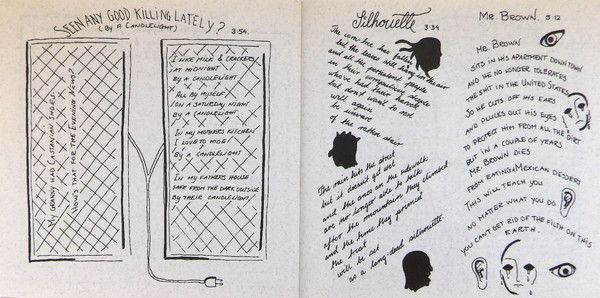 SEEN ANY GOOD KILLING LATELY?
(BY A CANDLELIGHT) 3:54.
MY GRANNY HAD CASTANIAN SMILES,
HOW'S THAT FOR THE EVENING NEWS?
I LIKE MILK & CRACKERS
AT MIDNIGHT
BY A CANDLELIGHT
ALL BY MYSELF
ON A SATURDAY NIGHT
BY A CANDLELIGHT
IN MY MOTHERS KITCHEN
I LOVE TO HIDE
BY A CANDLELIGHT
IN MY FATHERS HOUSE
SAFE FROM THE DARK OUTSIDE
BY THEIR CANDLELIGHT
Silhouette 3:34
The rain tree has fallen
but the leaves still hang in the air
and all the persistent people
in their companion
who've lost their hands
but don't want to rest
will again
be aware
of the rotten shoe
The rain hits the street
but it doesn't get wet
and the ones on the sidewalk
are no longer able to talk
after the mountain they climbed
and the time they
the beat
will be set
as a long-dead silhouette.
MR. BROWN. 5:12
MR. BROWN
SITS IN HIS APARTMENT DOWNTOWN
AND HE NO LONGER TOLERATES
THE SHIT IN THE UNITED STATES
SO HE CUTS OFF HIS EARS
AND PLUCKS OUT HIS EYES
TO PROTECT HIM FROM ALL THE DIRT
BUT IN A COUPLE OF YEARS
MR. BROWN DIES
FROM EATING MEXICAN DESSERT
THIS WILL TEACH YOU
NO MATTER WHAT YOU DO
YOU CAN'T GET RID OF THE FILTH ON THIS
EARTH.